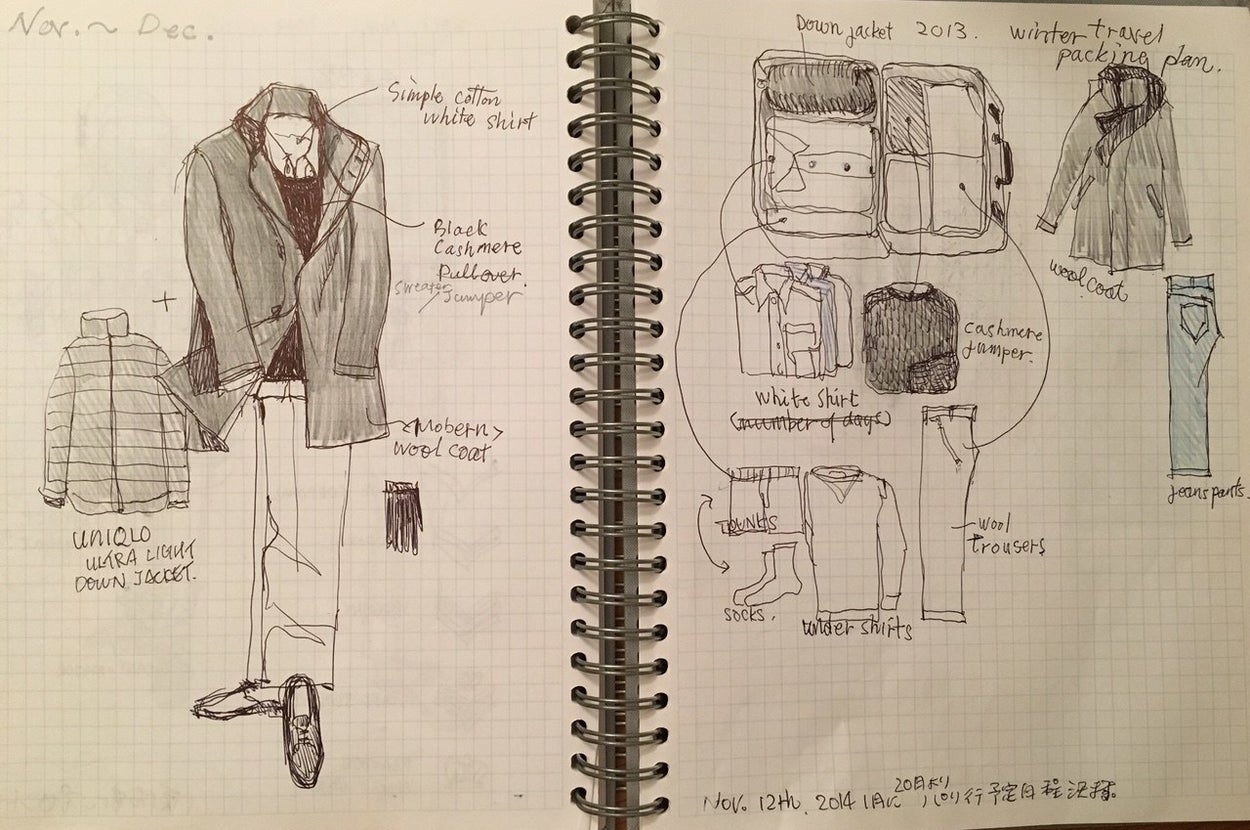 Nov. ~ Dec.
Simple cotton
white shirt
Black
Cashmere
Pullover.
sweater
Jumper
+
<Mobern>
wool coat
UNIQLO
ULTRA LIGHT
DOWN JACKET.
Down jacket 2013. winter travel
packing plan.
wool coat
cashmere
jumper.
white shirt
(number of days)
jeans pants.
TRUNKS
wool
trousers
socks.
under shirts
20日より
Nov. 12th. 2014 1月に パリ行予定日程決